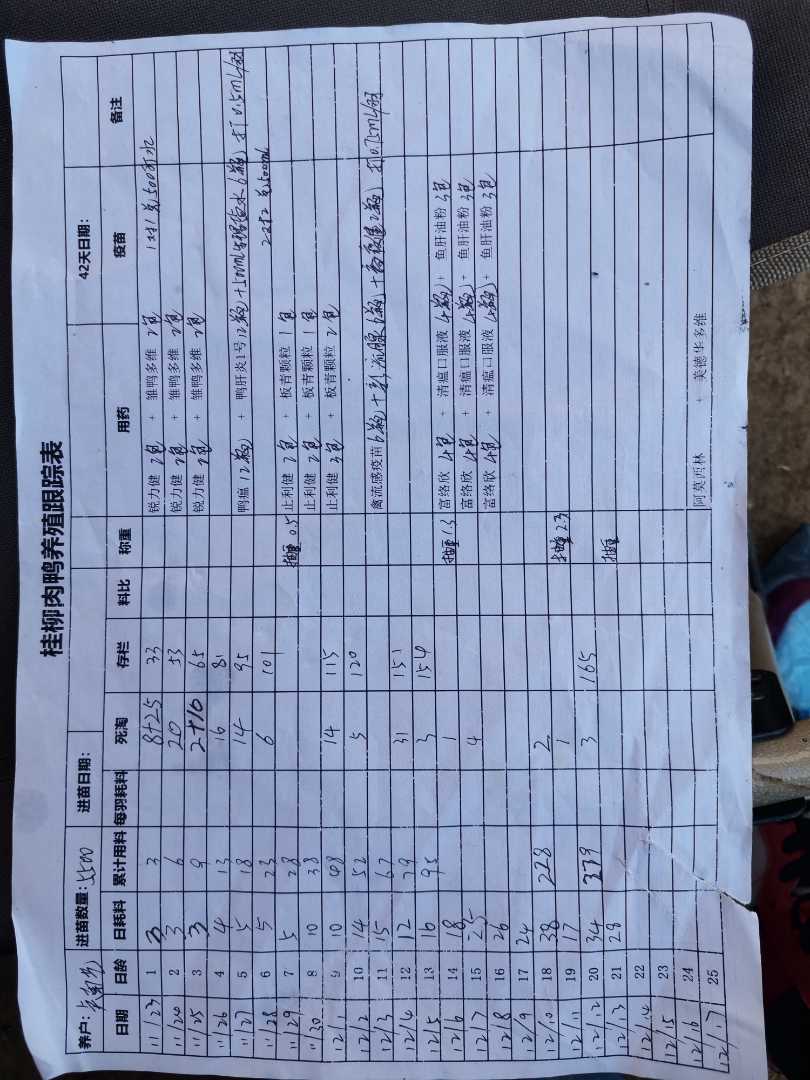 桂柳肉鸭养殖跟踪表
养户: 进苗数量: 5500 进苗日期: 42天日期:
日期 日龄 日耗料 累计用料 每羽耗料 死淘 存栏 料比 称重 用药 疫苗 备注
11/23 1 3 3 8+25 33 锐力健 2包 + 雏鸭多维 2包
11/24 2 3 6 20 53 锐力健 2包 + 雏鸭多维 2包
11/25 3 3 9 2+10 65 锐力健 2包 + 雏鸭多维 2包
11/26 4 4 13 16 81
11/27 5 5 18 14 95 鸭瘟 12瓶 + 鸭肝炎1号 12瓶 打0.5ml/羽
11/28 6 5 23 6 101
11/29 7 5 28 抽重0.5 止利健 2包 + 板青颗粒 1包
11/30 8 10 38 止利健 2包 + 板青颗粒 1包
12/1 9 10 48 14 115 止利健 3包 + 板青颗粒 2包
12/2 10 14 52 5 120
12/3 11 15 67 禽流感疫苗 6瓶 打0.75ml/羽
12/4 12 12 79 31 151
12/5 13 16 95 3 154
12/6 14 18 1 抽重1.3 富络欣 4包 + 清瘟口服液 + 鱼肝油粉 3包
12/7 15 25 4 富络欣 4包 + 清瘟口服液 + 鱼肝油粉 3包
12/8 16 26 富络欣 4包 + 清瘟口服液 + 鱼肝油粉 3包
12/9 17 24
12/10 18 38 228 2
12/11 19 17 1 抽重2.3
12/12 20 34 279 3 165
12/13 21 28 抽重
12/14 22
12/15 23
12/16 24
12/17 25 阿莫西林 + 美德华多维